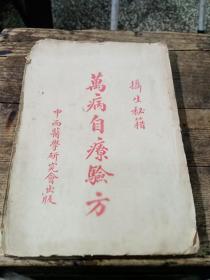 攝生秘籍
萬病自療驗方
中西醫學研究會出版